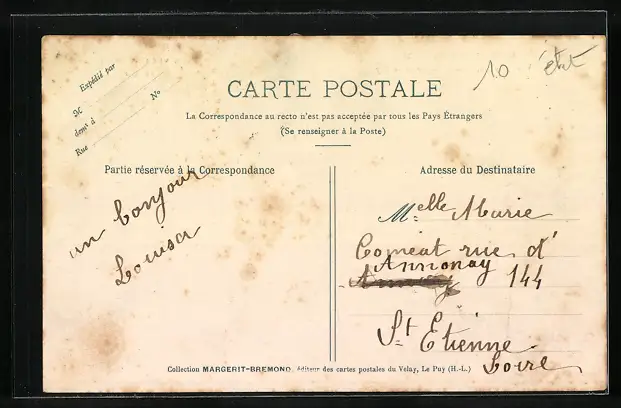 Expédié par
M
demt à
Rue
No
CARTE POSTALE
10 état
La Correspondance au recto n'est pas acceptée par tous les Pays Étrangers
(Se renseigner à la Poste)
Partie réservée à la Correspondance
un bonjour
Louisa
Adresse du Destinataire
Melle Marie
Comeat rue d'
Annonay 144
St Etienne
Loire
Collection MARGERIT-BREMOND, éditeur des cartes postales du Velay, Le Puy (H.-L.)